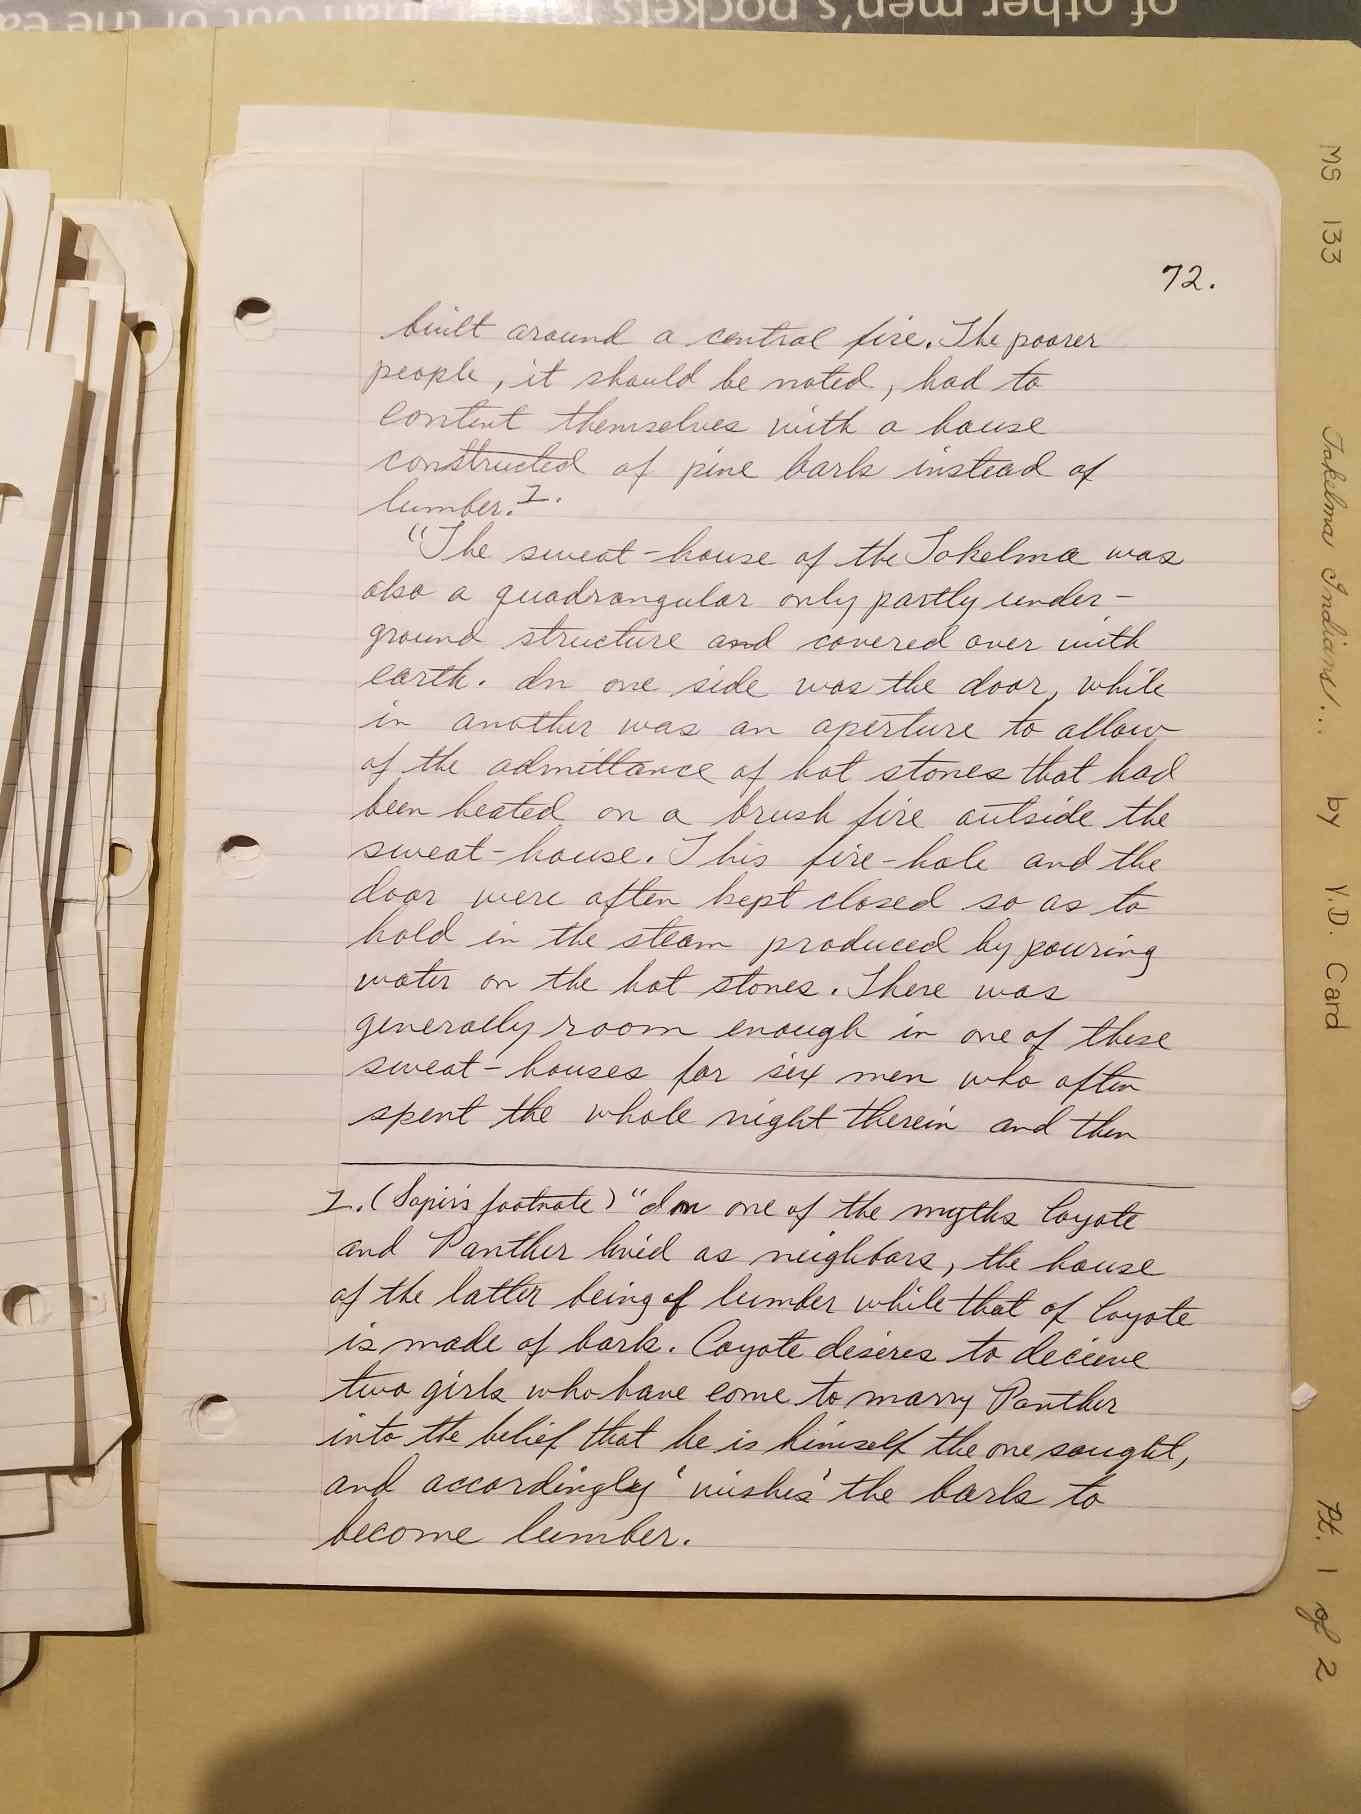 of other men's pockets rather than out of the ea
72.
built around a central fire. The poorer
people, it should be noted, had to
content themselves with a house
constructed of pine bark instead of
lumber. 1.
"The sweat-house of the Takelma was
also a quadrangular only partly under-
ground structure and covered over with
earth. In one side was the door, while
in another was an aperture to allow
of the admittance of hot stones that had
been heated on a brush fire outside the
sweat-house. This fire-hole and the
door were often kept closed so as to
hold in the steam produced by pouring
water on the hot stones. There was
generally room enough in one of these
sweat-houses for six men who often
spent the whole night therein and then
1. (Sapir's footnote) "In one of the myths Coyote
and Panther lived as neighbors, the house
of the latter being of lumber while that of Coyote
is made of bark. Coyote desires to decieve
two girls who have come to marry Panther
into the belief that he is himself the one sought,
and accordingly 'wishes' the bark to
become lumber.
MS 133 Takelma Indians... by V.D. Card Pt. 1 of 2